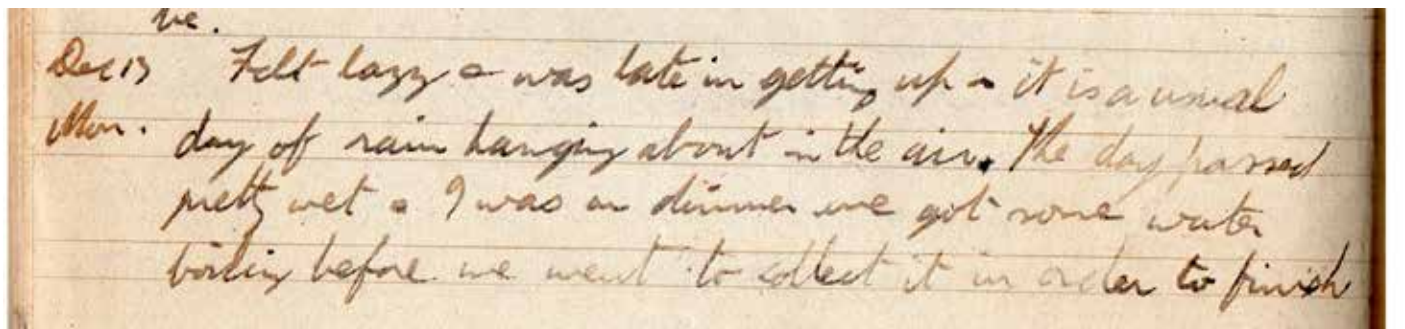 ve.
Dec 13 Felt lazy & was late in getting up & it is a usual
Mon. day of rain hanging about in the air. The day passed
pretty wet & I was on dinner we got some water
boiling before we went to collect it in order to finish